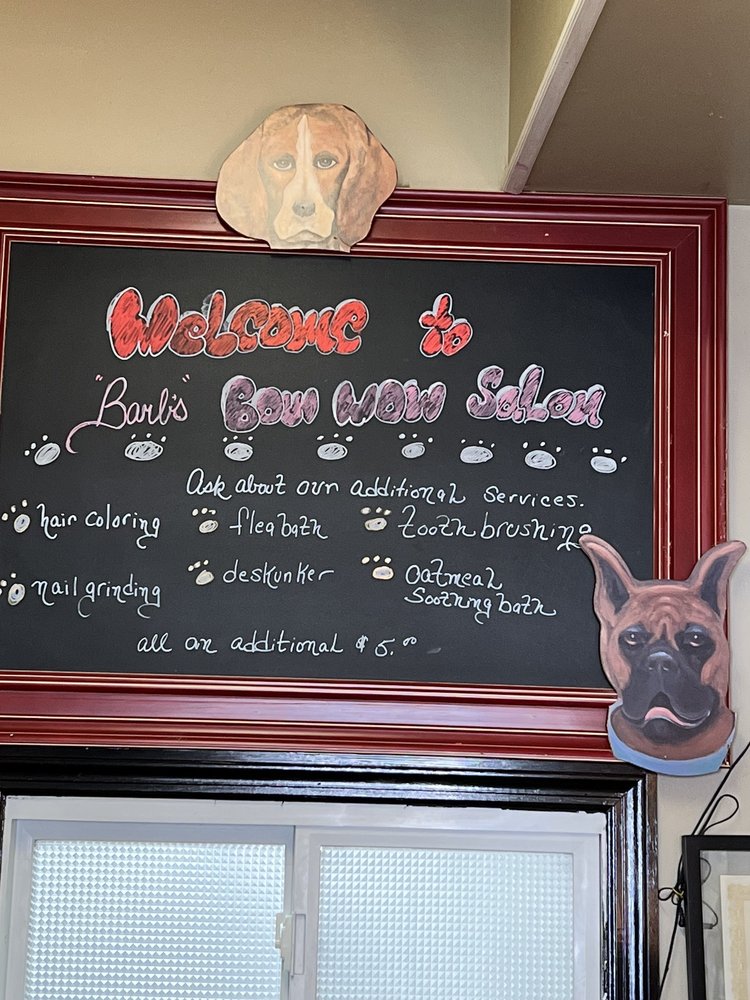 Welcome to
"Barb's" Bow Wow Salon
Ask about our additional services.
hair coloring flea bath tooth brushing
nail grinding deskunker oatmeal
Soothing bath
all an additional $5.00